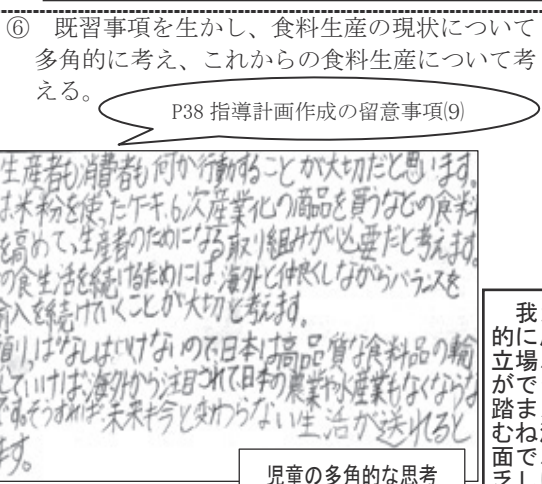 ⑥ 既習事項を生かし、食料生産の現状について
多角的に考え、これからの食料生産について考
える。
P38 指導計画作成の留意事項⑼
生産者も消費者も何か行動することが大切だと思います。
は、米粉を使ったケーキ、6次産業化の商品を買うなどの食料
を高めて、生産者のためになる取り組みが必要だと考えます。
の食生活を続けるためには、海外と仲良くしながらバランスを
輸入を続けていくことが大切と考えます。
頼りっぱなしはいけないので、日本は高品質な食料品の輸
していけば、海外から注目されて日本の農業や水産業もなくならな
です。そうすれば未来も今と変わらない生活が送れると
ます。
児童の多角的な思考
我
的に
立場
がで
踏ま
むね
面で
乏し